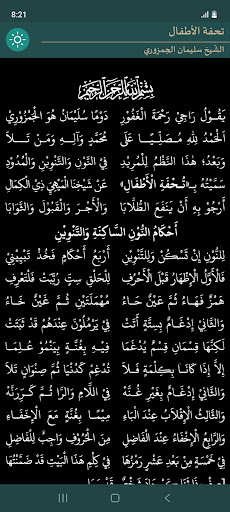 8:21
تحفة الأطفال
الشيخ سليمان الجمزوري
بِسْمِ اللَّهِ الرَّحْمَنِ الرَّحِيمِ
يَقُولُ رَاجِي رَحْمَةِ الْغَفُورِ دَوْمًا سُلَيْمَانُ هُوَ الْجَمْزُورِي
الْحَمْدُ لِلَّهِ مُصَلِّيًا عَلَى مُحَمَّدٍ وَآلِهِ وَمَنْ تَلَا
وَبَعْدُ؛ هَذَا النَّظْمُ لِلْمُرِيدِ فِي النُّونِ وَالتَّنْوِينِ وَالْمُدُودِ
سَمَّيْتُهُ بِـ«تُحْفَةِ الْأَطْفَالِ» عَنْ شَيْخِنَا الْمِيهِيِّ ذِي الْكَمَالِ
أَرْجُو بِهِ أَنْ يَنْفَعَ الطُّلَّابَا وَالْأَجْرَ وَالْقَبُولَ وَالثَّوَابَا
أَحْكَامُ النُّونِ السَّاكِنَةِ وَالتَّنْوِينِ
لِلنُّونِ إِنْ تَسْكُنْ وَلِلتَّنْوِينِ أَرْبَعُ أَحْكَامٍ فَخُذْ تَبْيِينِي
فَالْأَوَّلُ الْإِظْهَارُ قَبْلَ الْأَحْرُفِ لِلْحَلْقِ سِتٍّ رُتِّبَتْ فَلْتَعْرِفِ
هَمْزٌ فَهَاءٌ ثُمَّ عَيْنٌ حَاءُ مُهْمَلَتَيْنِ ثُمَّ غَيْنٌ خَاءُ
وَالثَّانِي إِدْغَامٌ بِسِتَّةٍ أَتَتْ فِي يَرْمُلُونَ عِنْدَهُمْ قَدْ ثَبَتَتْ
لَكِنَّهَا قِسْمَانِ قِسْمٌ يُدْغَمَا فِيهِ بِغُنَّةٍ بِيَنْمُو عُلِمَا
إِلَّا إِذَا كَانَا بِكِلْمَةٍ فَلَا تُدْغِمْ كَدُنْيَا ثُمَّ صِنْوَانٍ تَلَا
وَالثَّانِي إِدْغَامٌ بِغَيْرِ غُنَّهْ فِي اللَّامِ وَالرَّا ثُمَّ كَرِّرَنَّهْ
وَالثَّالِثُ الْإِقْلَابُ عِنْدَ الْبَاءِ مِيمًا بِغُنَّةٍ مَعَ الْإِخْفَاءِ
وَالرَّابِعُ الْإِخْفَاءُ عِنْدَ الْفَاضِلِ مِنَ الْحُرُوفِ وَاجِبٌ لِلْفَاضِلِ
فِي خَمْسَةٍ مِنْ بَعْدِ عَشْرٍ رَمْزُهَا فِي كِلْمِ هَذَا الْبَيْتِ قَدْ ضَمَّنْتُهَا